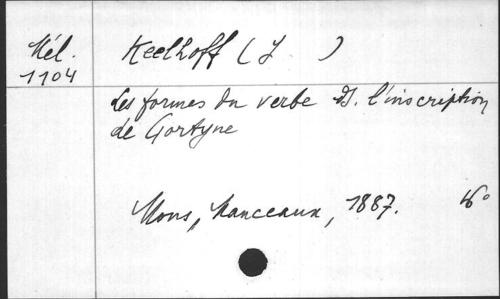 Mél.
1104
Keelhoff (J )
Les formes du verbe ds. l'inscription
de Gortyne
Mons, Manceaux, 1887.